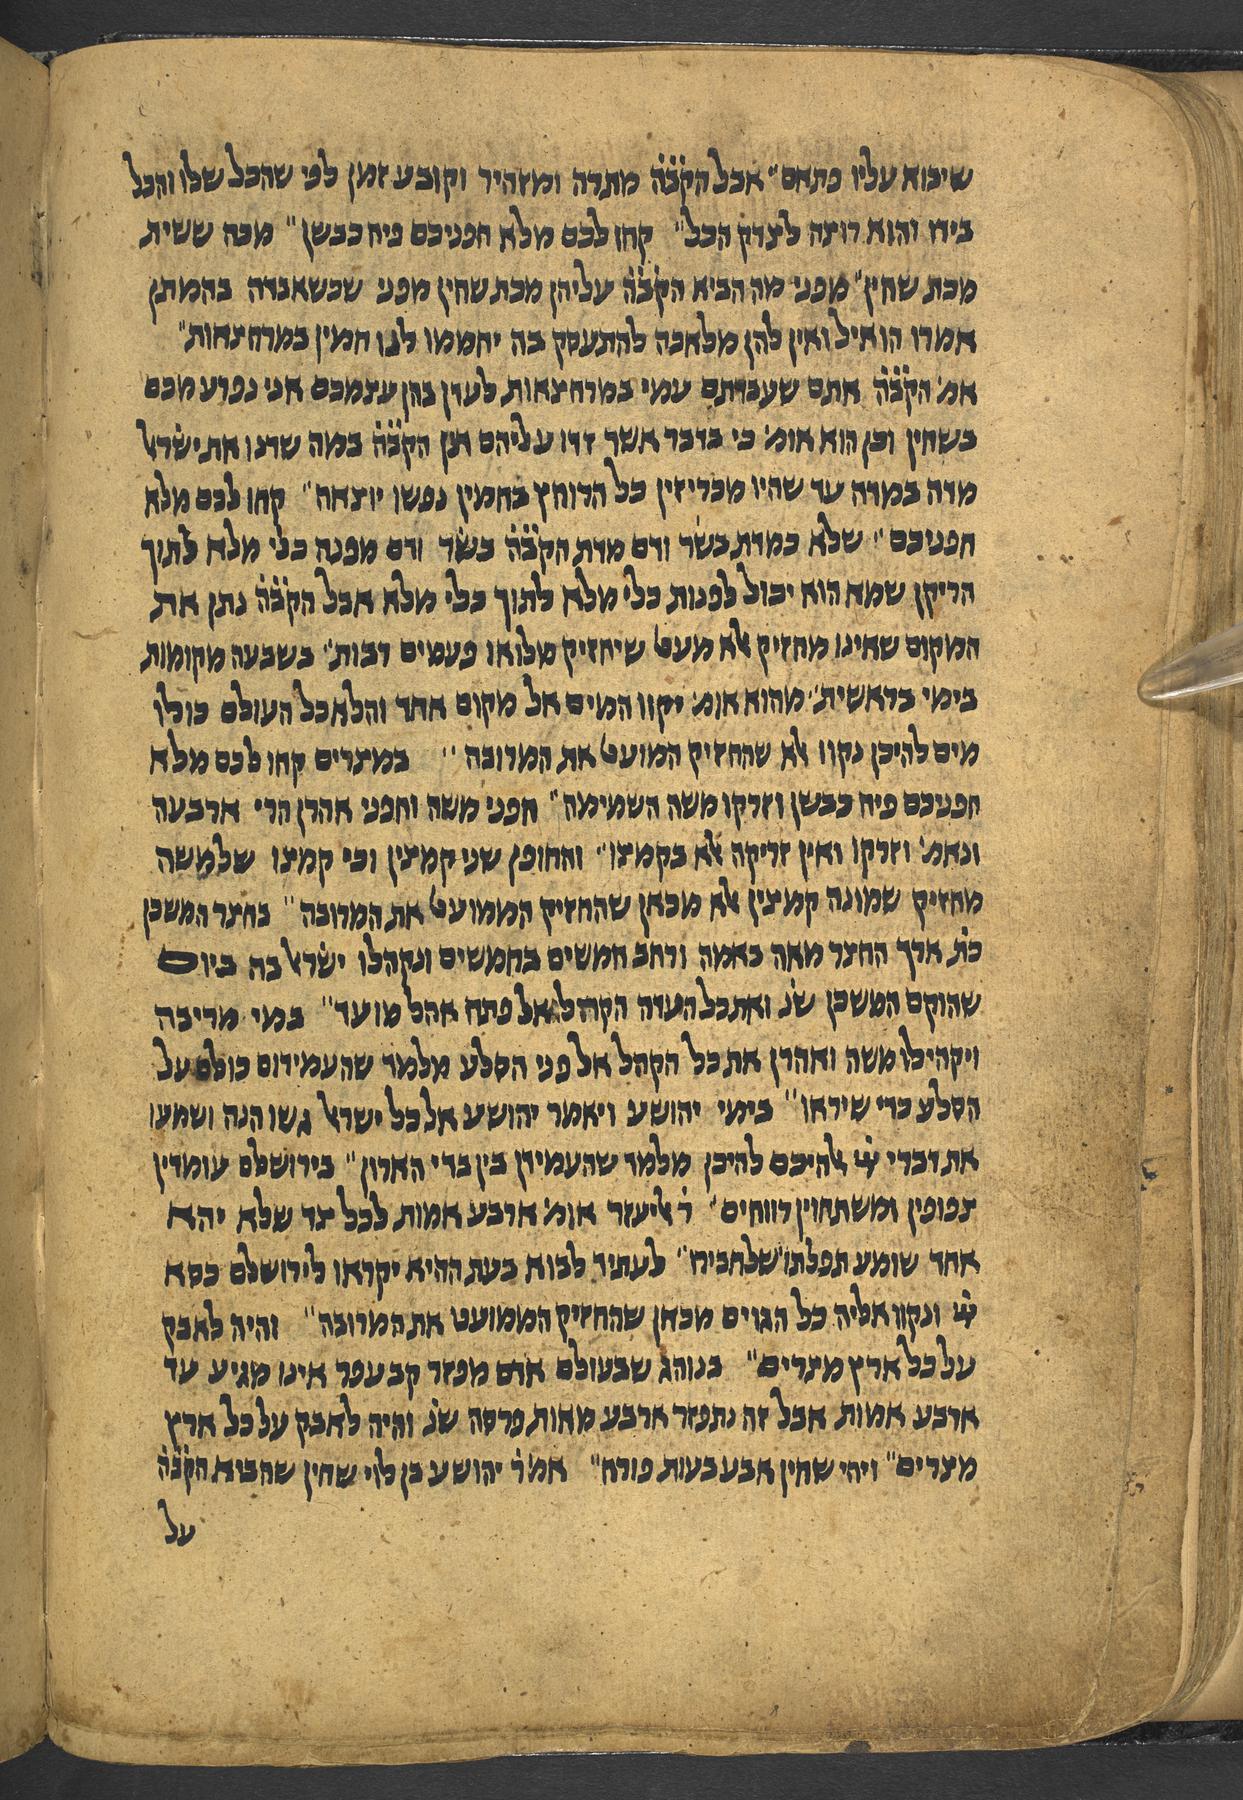 שיבוא עליו פתאם״ אבל הק̇ב̇ה̇ מתרה ומזהיר וקובע זמן לפי שהכל שלו והכל
בידו והוא רוצה לצדק הכל״ קחו לכם מלא חפניכם פיח כבשן״ מכה ששית
מכת שחין״ מפני מה הביא הק̇ב̇ה̇ עליהן מכת שחין מפני שכשאבדה בהמתן
אמרו הואיל ואין להן מלאכה להתעסק בה יחממו לנו חמין במרחצאות״
אמ׳ הק̇ב̇ה̇ אתם שעבדתם עמי במרחצאות לעדן בהן עצמכם אני נפרע מכם
בשחין וכן הוא אומ׳ כי בדבר אשר זדו עליהם דן הק̇ב̇ה̇ במה שדנו את ישראל
מדה במדה עד שהיו מכריזין כל הרוחץ בחמין נפשו יוצאה״ קחו לכם מלא
חפניכם״ שלא כמדת בשר ודם מדת הק̇ב̇ה̇ בשר ודם מפנה כלי מלא לתוך
הריקן שמא הוא יכול לפנות כלי מלא לתוך כלי מלא אבל הק̇ב̇ה̇ נתן את
המקום שאינו מחזיק אלא מעט שיחזיק מלואו פעמים רבות״ בשבעה מקומות
בימי בראשית״ מהוא אומ׳ יקוו המים אל מקום אחד והלא כל העולם כולו
מים להיכן נקוו אלא שהחזיק המועט את המרובה״ במצרים קחו לכם מלא
חפניכם פיח כבשן וזרקו משה השמימה״ חפני משה וחפני אהרן הרי ארבעה
ונאמ׳ וזרקו ואין זריקה אלא בקמצו״ והחופן שני קמצין וכי קמצו שלמשה
מחזיק שמונה קמצין אלא מכאן שהחזיק הממועט את המרובה״ בחצר המשכן
כת׳ ארך החצר מאה באמה ורחב חמשים בחמשים ונקהלו ישראל בה ביום
שהוקם המשכן שנ׳ ואת כל העדה הקהל אל פתח אהל מועד״ במי מריבה
ויקהילו משה ואהרן את כל הקהל אל פני הסלע מלמד שהעמידום כולם על
הסלע כדי שיראו״ בימי יהושע ויאמר יהושע אל כל ישראל גשו הנה ושמעו
את דברי ייי אלהיכם להיכן מלמד שהעמידן בין בדי הארון״ בירושלם עומדין
צפופין ומשתחוין רווחים״ ר׳ אליעזר אומ׳ ארבע אמות לכל צד שלא יהא
אחד שומע תפלתו שלחבירו״ לעתיד לבוא בעת ההיא יקראו לירושלם כסא
ייי ונקוו אליה כל הגוים מכאן שהחזיק הממועט את המרובה״ והיה לאבק
על כל ארץ מצרים״ בנוהג שבעולם אדם מפזר קב עפר אינו מגיע עד
ארבע אמות אבל זה נתפזר ארבע מאות פרסה שנ׳ והיה לאבק על כל ארץ
מצרים״ ויהי שחין אבעבעות פורח״ אמ׳ ר׳ יהושע בן לוי שחין שהביא הק̇ב̇ה̇
על